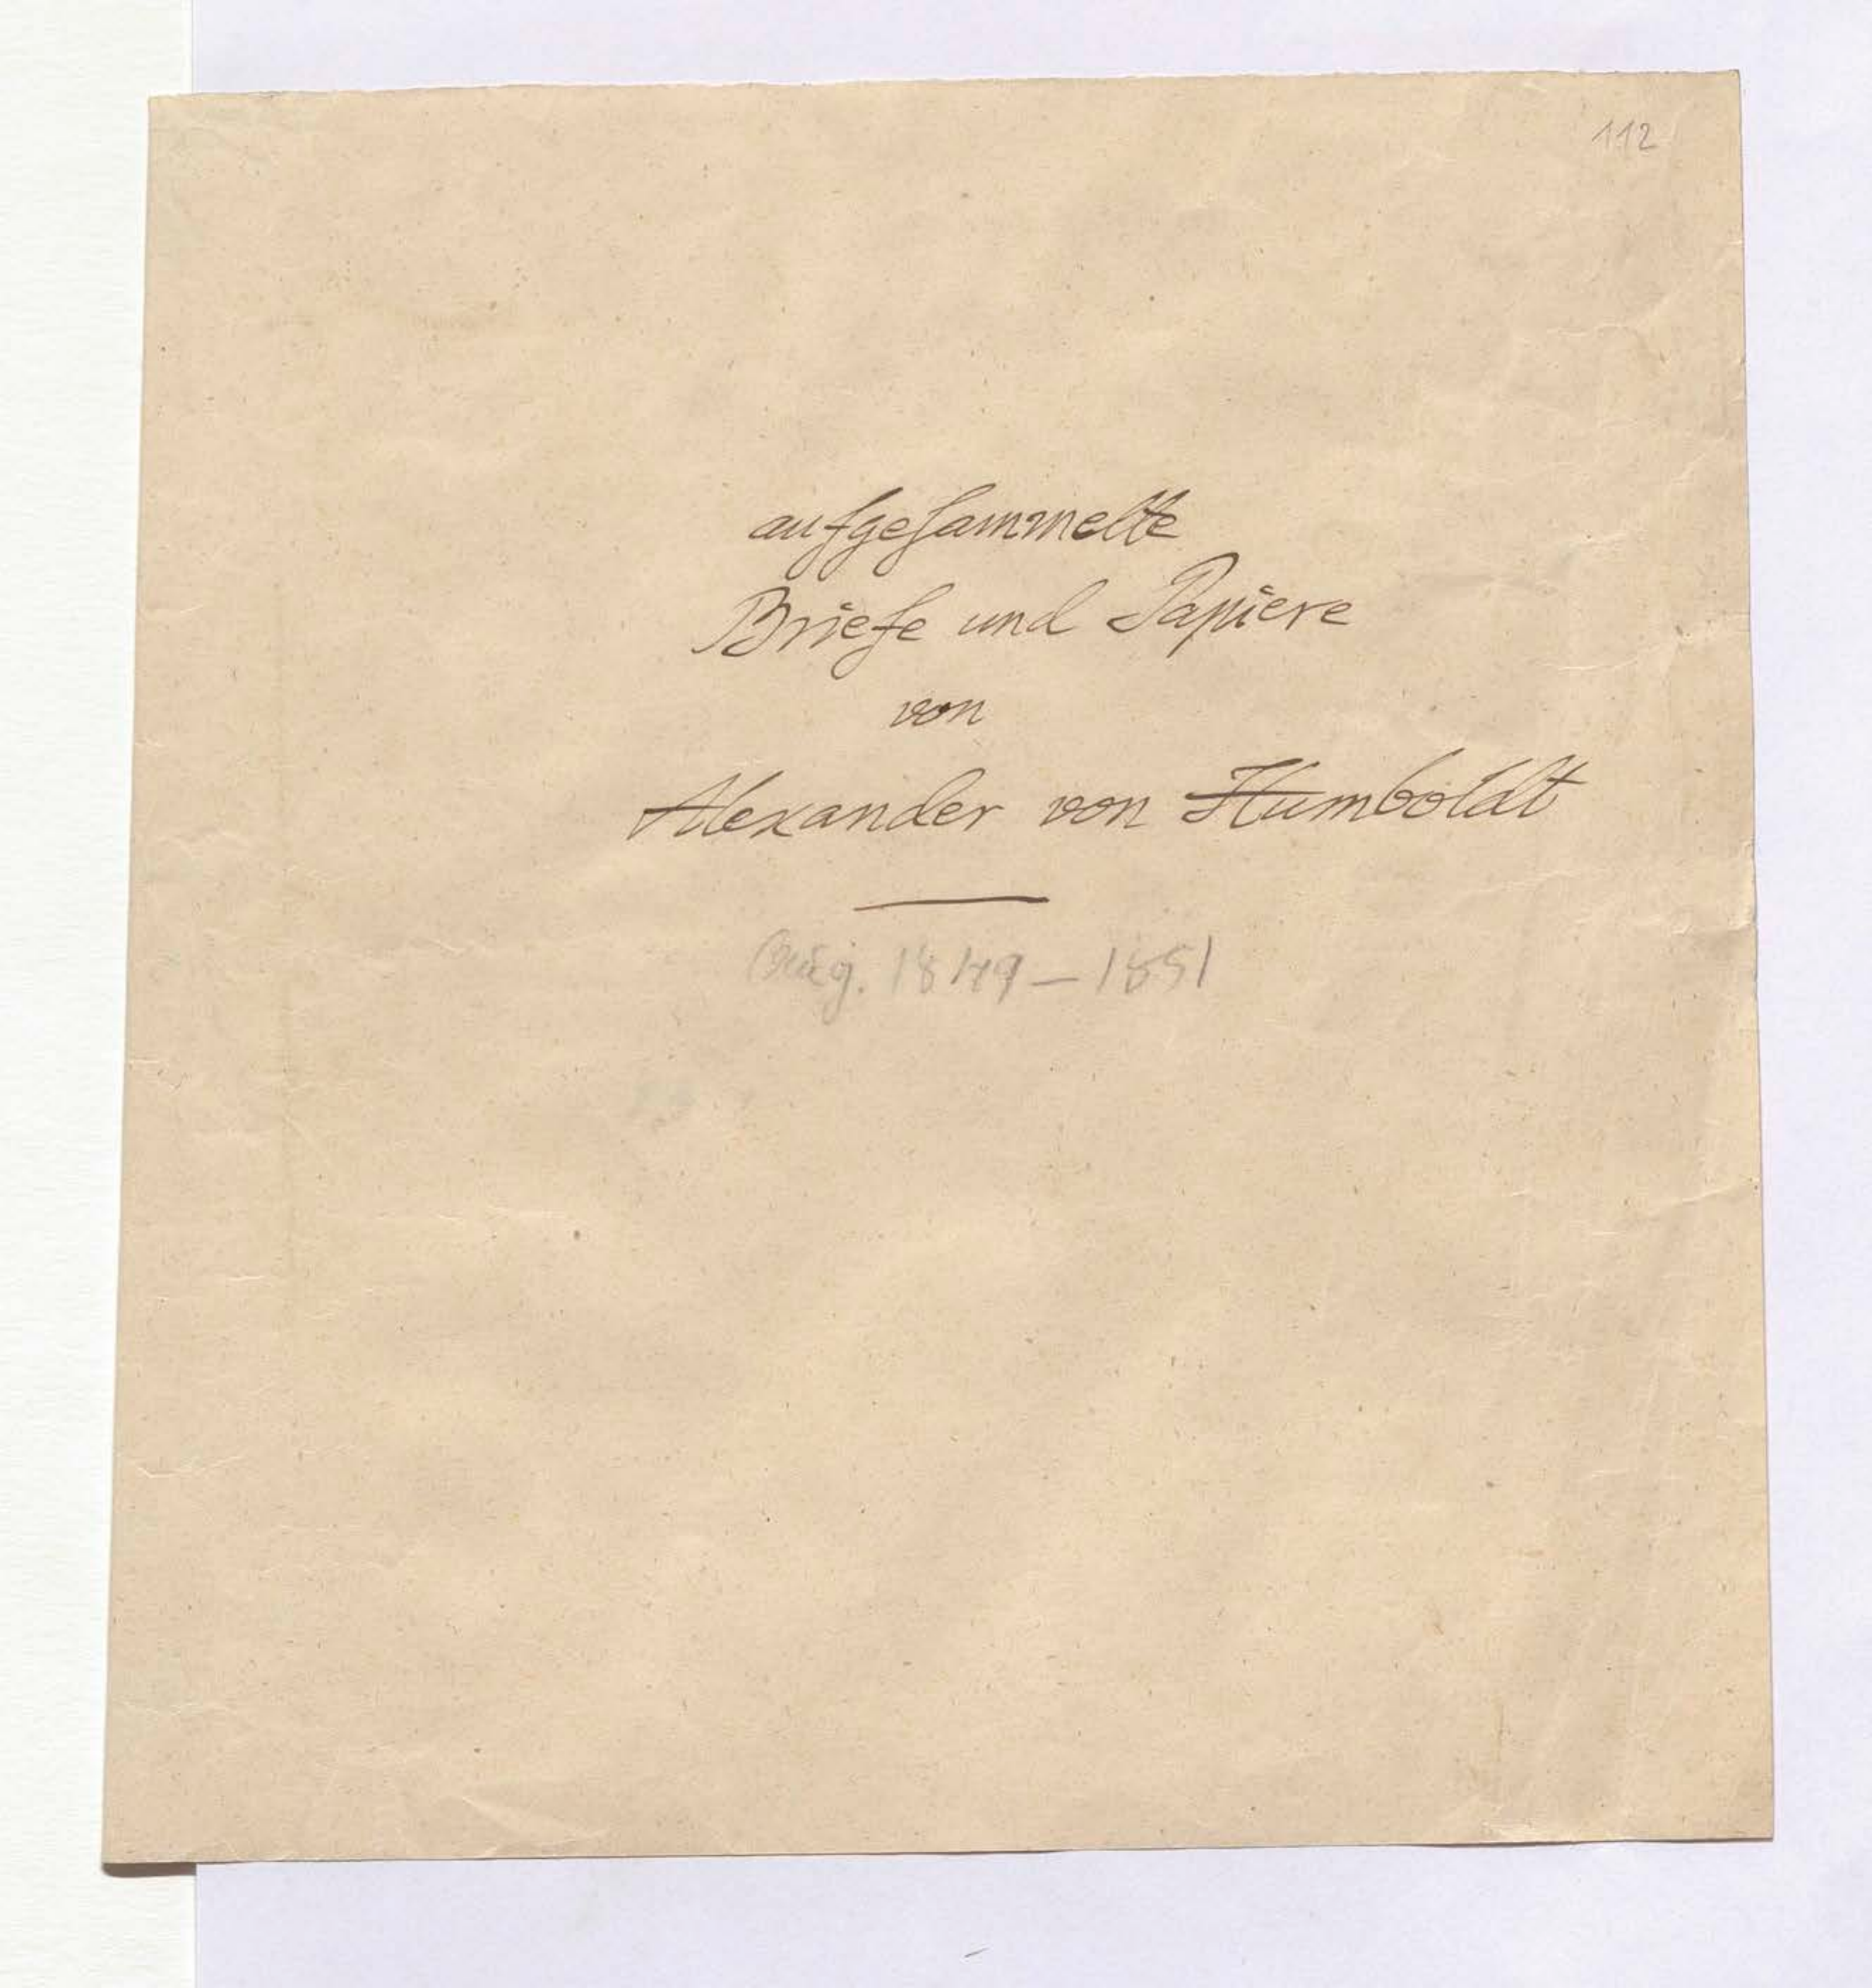 112
aufgesammelte
Briefe und Papiere
von
Alexander von Humboldt
Aug. 1849 – 1851